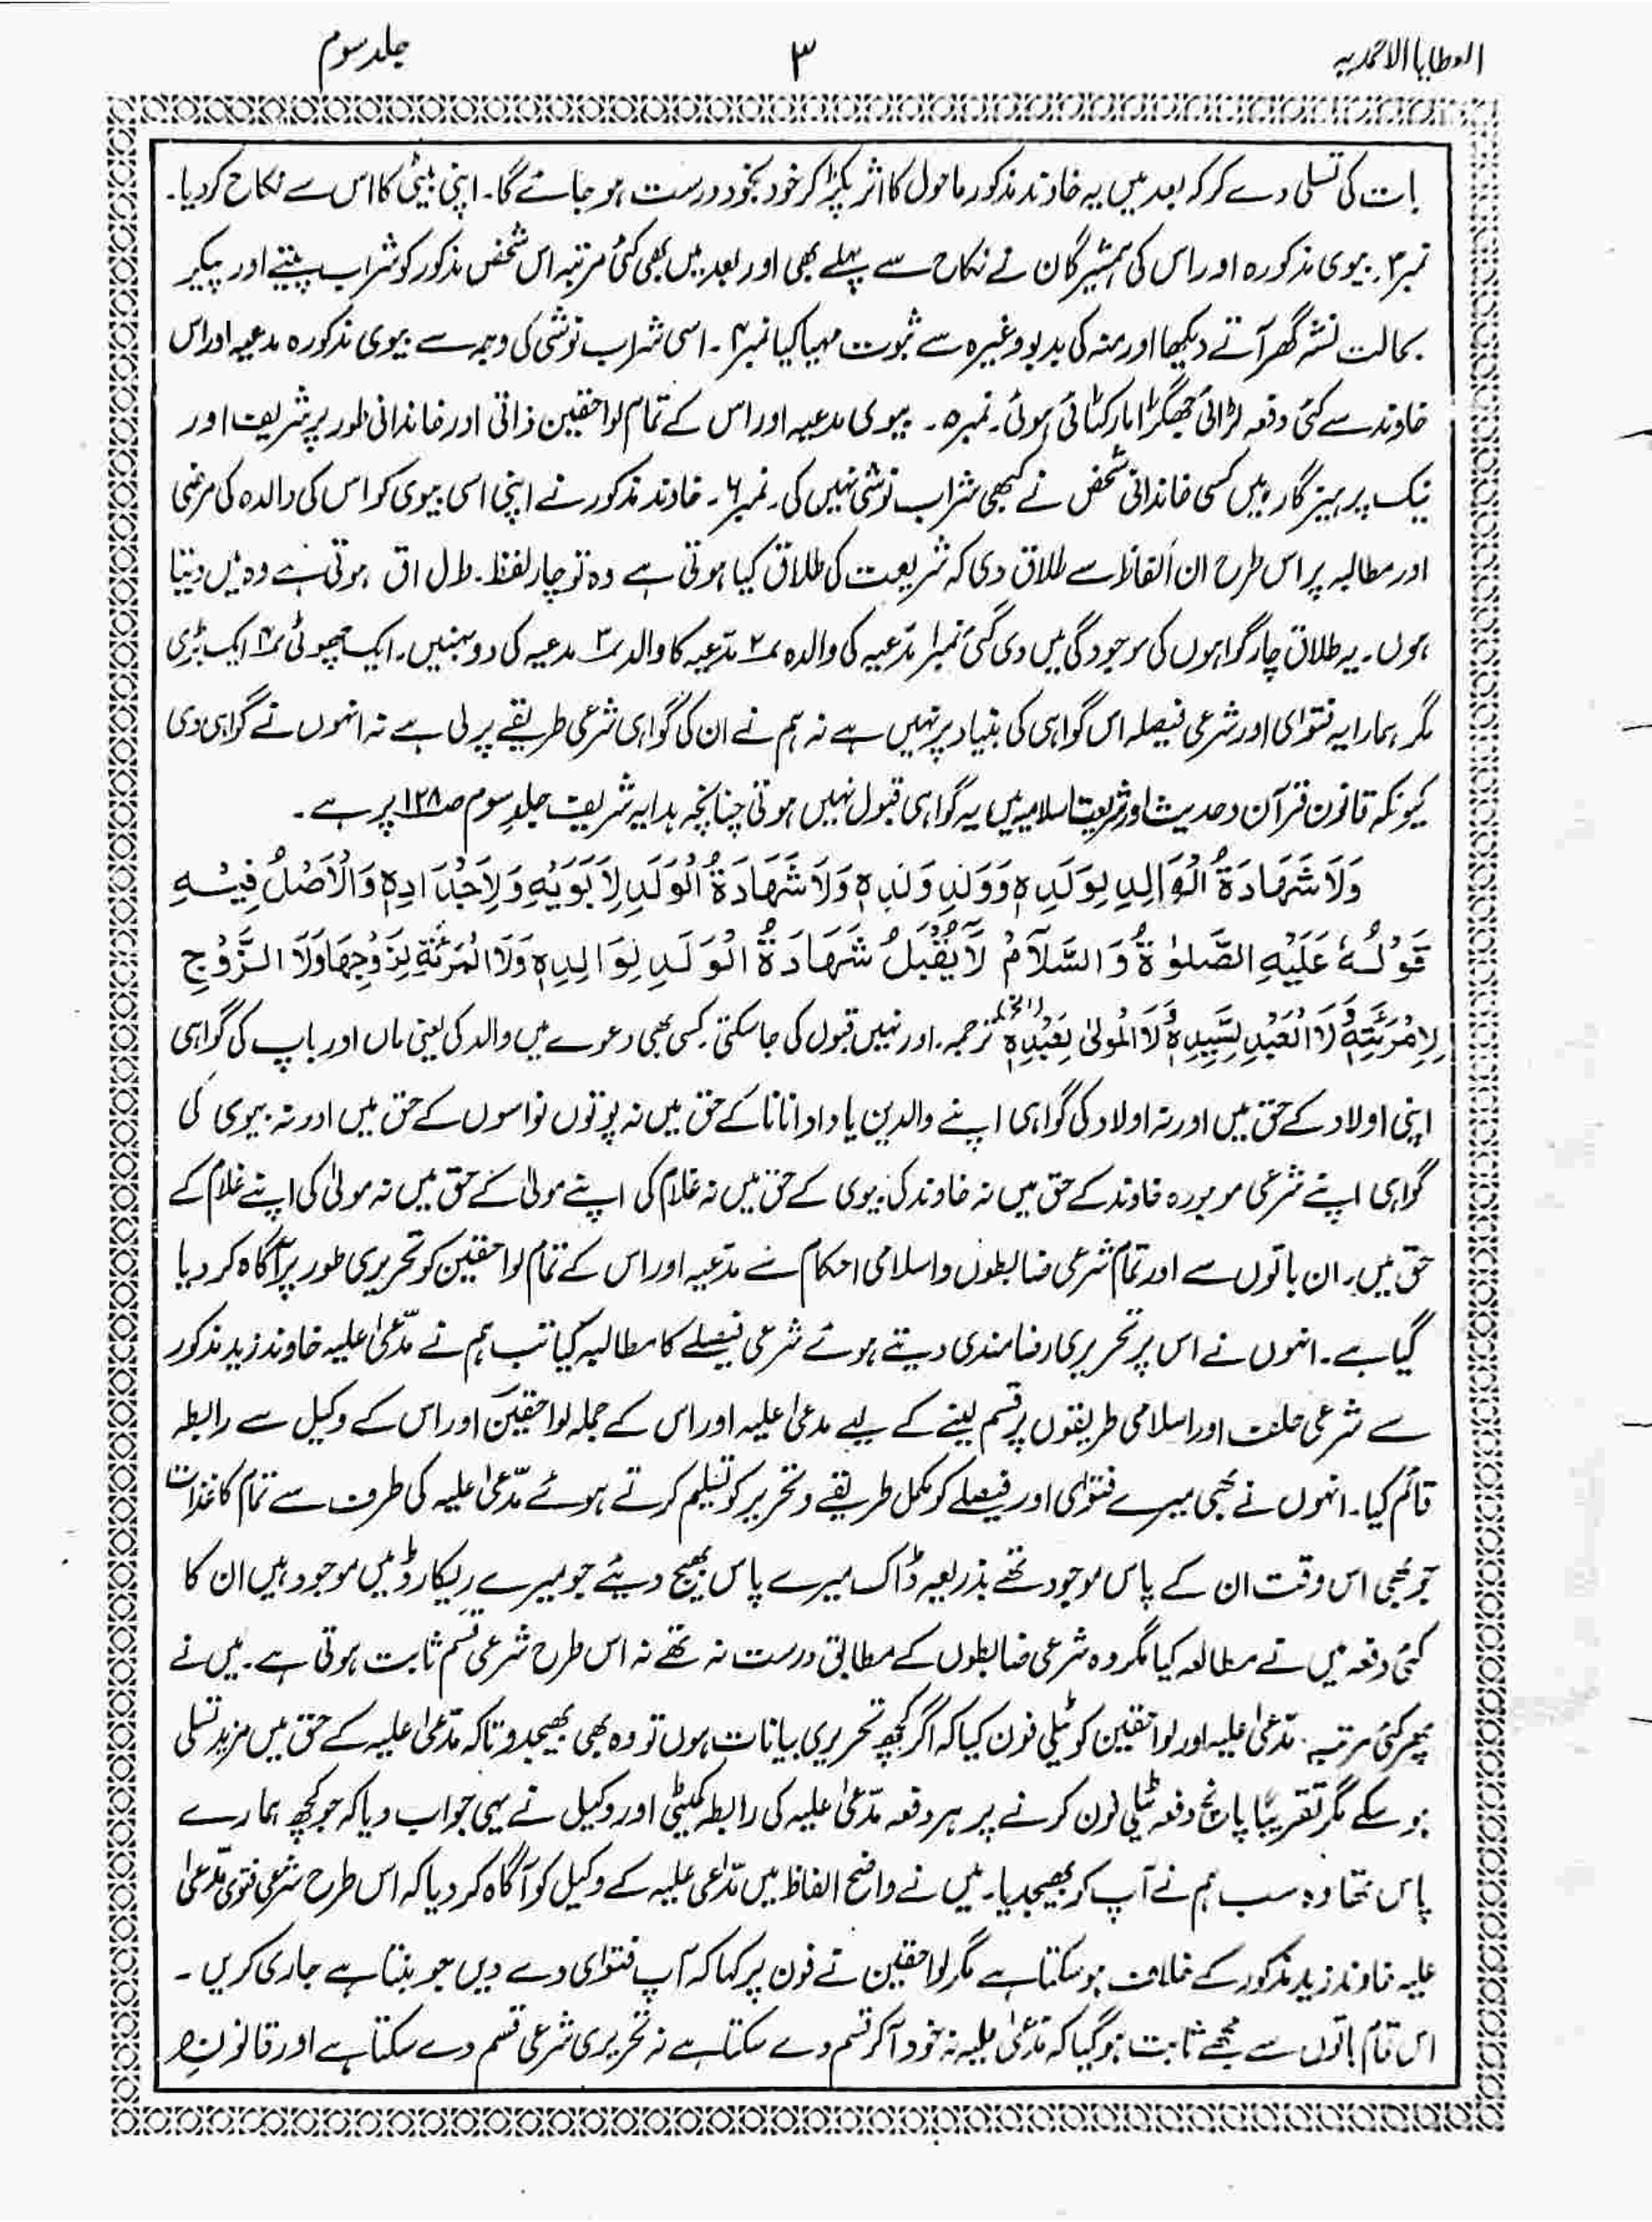 العطایا الاحمدیہ ۳ جلد سوم
بات کی تسلی دے کر کہ بعد میں یہ خاوند مذکور ماحول کا اثر پکڑ کر خود بخود درست ہو جائے گا۔ اپنی بیٹی کا اس سے نکاح کر دیا۔
نمبر۳۔ بیوی مذکورہ اور اس کی ہمشیرگان نے نکاح سے پہلے بھی اور بعد میں بھی کئی مرتبہ اس شخص مذکور کو شراب پیتے اور پیکر
بحالت نشہ گھر آتے دیکھا اور منہ کی بدبو وغیرہ سے ثبوت مہیا کیا نمبر۴۔ اسی شراب نوشی کی وجہ سے بیوی مذکورہ مدعیہ اور اس
خاوند سے کئی دفعہ لڑائی جھگڑا مار کٹائی ہوئی۔ نمبر۵۔ بیوی مدعیہ اور اس کے تمام لواحقین ذاتی اور خاندانی طور پر شریف اور
نیک پرہیزگار ہیں کسی خاندانی شخص نے کبھی شراب نوشی نہیں کی۔ نمبر۶۔ خاوند مذکور نے اپنی اسی بیوی کو اس کی والدہ کی مرضی
اور مطالبہ پر اس طرح ان الفاظ سے طلاق دی کہ شریعت کی طلاق کیا ہوتی ہے وہ تو چار لفظ۔ ط ل ا ق ہوتی ہے وہ میں دیتا
ہوں۔ یہ طلاق چار گواہوں کی موجودگی میں دی گئی نمبر۱ مدّعیہ کی والدہ ۲ مدّعیہ کا والد ۳ مدعیہ کی دو بہنیں۔ ایک چھوٹی ۴ ایک بڑی
مگر ہمارا یہ فتوٰی اور شرعی فیصلہ اس گواہی کی بنیاد پر نہیں ہے نہ ہم نے ان کی گواہی شرعی طریقے پر لی ہے نہ انہوں نے گواہی دی
کیونکہ قانون قرآن و حدیث اور شریعت اسلامیہ میں یہ گواہی قبول نہیں ہوتی چنانچہ ہدایہ شریف جلد سوم صـ۱۲۸ پر ہے۔
وَلَا شَهَادَةُ الْوَالِدِ لِوَلَدِہٖ وَوَلَدِ وَلَدِہٖ وَلَا شَهَادَةُ الْوَلَدِ لِاَبَوَيْهِ وَلِاَجْدَادِہٖ وَالْاَصْلُ فِيْهِ
قَوْلُهٗ عَلَيْهِ الصَّلوٰةُ وَالسَّلَامُ لَا يُقْبَلُ شَهَادَةُ الْوَلَدِ لِوَالِدِہٖ وَلَا الْمَرْئَةِ لِزَوْجِهَا وَلَا الزَّوْجِ
لِاِمْرَئَتِهٖ وَلَا الْعَبْدِ لِسَيِّدِہٖ وَلَا الْمَوْلىٰ لِعَبْدِہٖ (الخ) ترجمہ۔ اور نہیں قبول کی جا سکتی کسی بھی دعوے میں والد کی یعنی ماں اور باپ کی گواہی
اپنی اولاد کے حق میں اور نہ اولاد کی گواہی اپنے والدین یا دادا نانا کے حق میں نہ پوتوں نواسوں کے حق میں اور نہ بیوی کی
گواہی اپنے شرعی موجودہ خاوند کے حق میں نہ خاوند کی بیوی کے حق میں نہ غلام کی اپنے مولیٰ کے حق میں نہ مولیٰ کی اپنے غلام کے
حق میں۔ ان باتوں سے اور تمام شرعی ضابطوں و اسلامی احکام سے مدّعیہ اور اس کے تمام لواحقین کو تحریری طور پر آگاہ کر دیا
گیا ہے۔ انہوں نے اس پر تحریری رضامندی دیتے ہوئے شرعی فیصلے کا مطالبہ کیا تب ہم نے مدّعیٰ علیہ خاوند زید مذکور
سے شرعی حلف اور اسلامی طریقوں پر قسم لینے کے لیے مدعیٰ علیہ اور اس کے جملہ لواحقین اور اس کے وکیل سے رابطہ
قائم کیا۔ انہوں نے بھی میرے فتوٰی اور فیصلے کو مکمل طریقے و تحریر کو تسلیم کرتے ہوئے مدّعیٰ علیہ کی طرف سے تمام کاغذات
جو بھی اس وقت ان کے پاس موجود تھے بذریعہ ڈاک میرے پاس بھیج دیئے جو میرے ریکارڈ میں موجود ہیں ان کا
کئی دفعہ میں نے مطالعہ کیا مگر وہ شرعی ضابطوں کے مطابق درست نہ تھے نہ اس طرح شرعی قسم ثابت ہوتی ہے۔ میں نے
پھر کئی مرتبہ مدّعیٰ علیہ اور لواحقین کو ٹیلی فون کیا کہ اگر کچھ تحریری بیانات ہوں تو وہ بھی بھیجدو تاکہ مدّعیٰ علیہ کے حق میں مزید تسلی
ہو سکے مگر تقریبًا پانچ دفعہ ٹیلی فون کرنے پر ہر دفعہ مدّعیٰ علیہ کی رابطہ کمیٹی اور وکیل نے یہی جواب دیا کہ جو کچھ ہمارے
پاس تھا وہ سب ہم نے آپ کو بھیجدیا۔ میں نے واضح الفاظ میں مدّعی علیہ کے وکیل کو آگاہ کر دیا کہ اس طرح شرعی فتوٰی مدّعیٰ
علیہ خاوند زید مذکور کے خلاف ہو سکتا ہے مگر لواحقین نے فون پر کہا کہ آپ فتوٰی دے دیں جو بنتا ہے جاری کریں۔
اس تمام باتوں سے مجھے ثابت ہو گیا کہ مدّعیٰ علیہ نہ خود آ کر قسم دے سکتا ہے نہ تحریری شرعی قسم دے سکتا ہے اور قانون